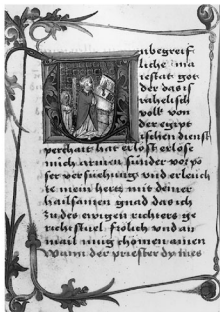 nbegreif
liche ma
iestat got
der das is
rahelisch
volk von
der egipt
ischen dienst
perchait hat erlost erlose
mich armen sunder vor po
ser versuechung und erleuch
te mein hertz mit deiner
hailsamen gnad das ich
zu des ewigen richters ge
richtstuel frolich und an
mail mug chömen amen
Wann der priester dy